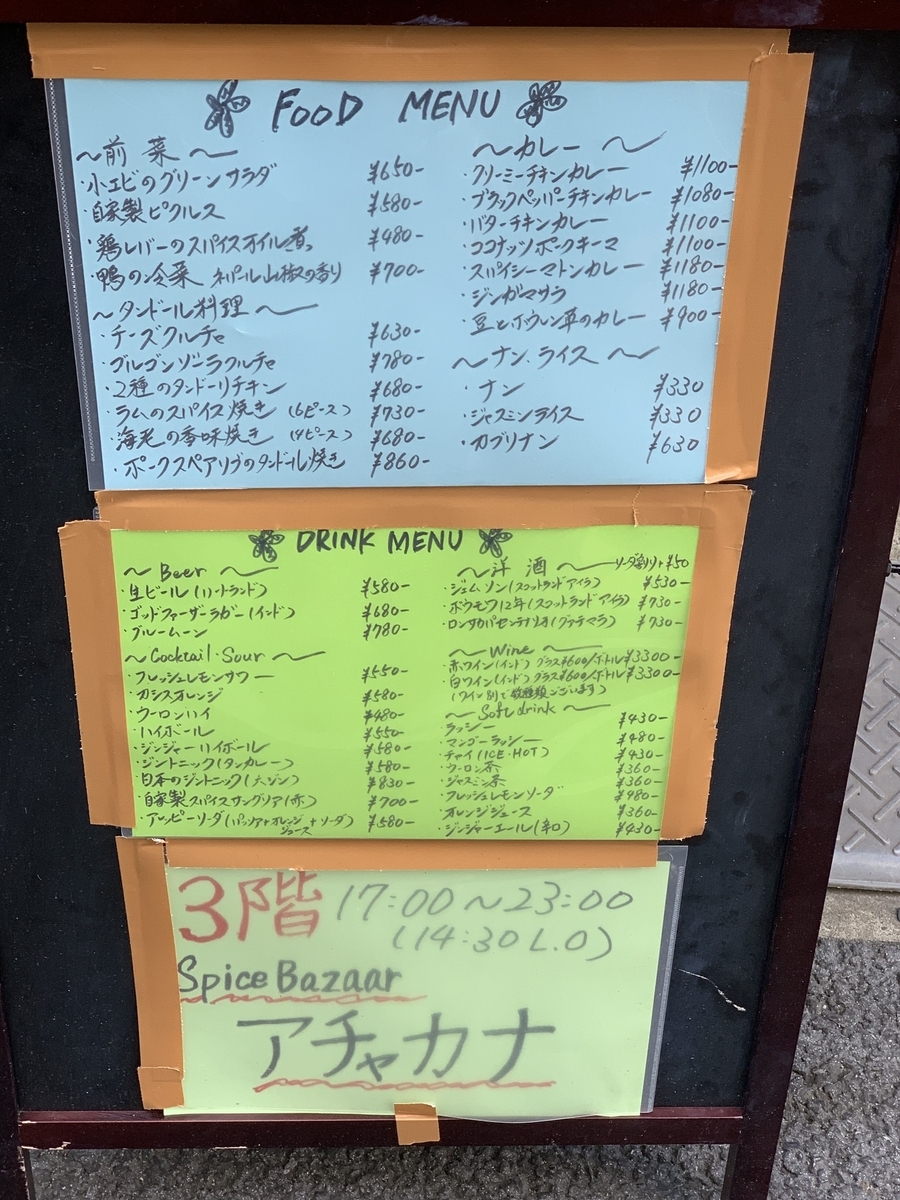 FOOD MENU
〜前菜〜
・小エビのグリーンサラダ ¥650-
・自家製ピクルス ¥580-
・鶏レバーのスパイスオイル煮 ¥480-
・鴨の冷菜 ネパール山椒の香り ¥700-
〜タンドール料理〜
・チーズクルチャ ¥630-
・ゴルゴンゾーラクルチャ ¥780-
・2種のタンドーリチキン ¥680-
・ラムのスパイス焼き (6ピース) ¥730-
・海老の香味焼き (4ピース) ¥680-
・ポークスペアリブのタンドール焼き ¥860-
〜カレー〜
・クリーミーチキンカレー ¥1100-
・ブラックペッパーチキンカレー ¥1080-
・バターチキンカレー ¥1100-
・ココナッツポークキーマ ¥1100-
・スパイシーマトンカレー ¥1180-
・ジンガマサラ ¥1180-
・豆とホウレン草のカレー ¥900-
〜ナン.ライス〜
・ナン ¥330
・ジャスミンライス ¥330
・カブリナン ¥630
DRINK MENU
〜Beer〜
・生ビール(ハートランド) ¥580-
・ゴッドファーザーラガー(インド) ¥680-
・ブルームーン ¥780-
〜Cocktail・Sour〜
・フレッシュレモンサワー ¥550-
・カシスオレンジ ¥580-
・ウーロンハイ ¥480-
・ハイボール ¥550-
・ジンジャーハイボール ¥580-
・ジントニック(タンカレー) ¥580-
・日本のジントニック(六ジン) ¥830-
・自家製スパイスサングリア(赤) ¥700-
・アレッピーソーダ(パッソア+オレンジジュース+ソーダ) ¥580-
〜洋酒〜 ソーダ割り+¥50
・ジェムソン(スコットランドアイラ) ¥530-
・ボウモア12年(スコットランドアイラ) ¥730-
・ロンサカパセンテナリオ(グァテマラ) ¥730-
〜Wine〜
・赤ワイン(インド) グラス¥600/ボトル¥3300-
・白ワイン(インド) グラス¥600/ボトル¥3300-
(ワイン別で数種類ございます)
〜Soft drink〜
・ラッシー ¥430-
・マンゴーラッシー ¥480-
・チャイ(ICE・HOT) ¥430-
・ウーロン茶 ¥360-
・ジャスミン茶 ¥360-
・フレッシュレモンソーダ ¥480-
・オレンジジュース ¥360-
・ジンジャーエール(辛口) ¥430-
3階 17:00〜23:00
(14:30 L.O)
Spice Bazaar
アチャカナ